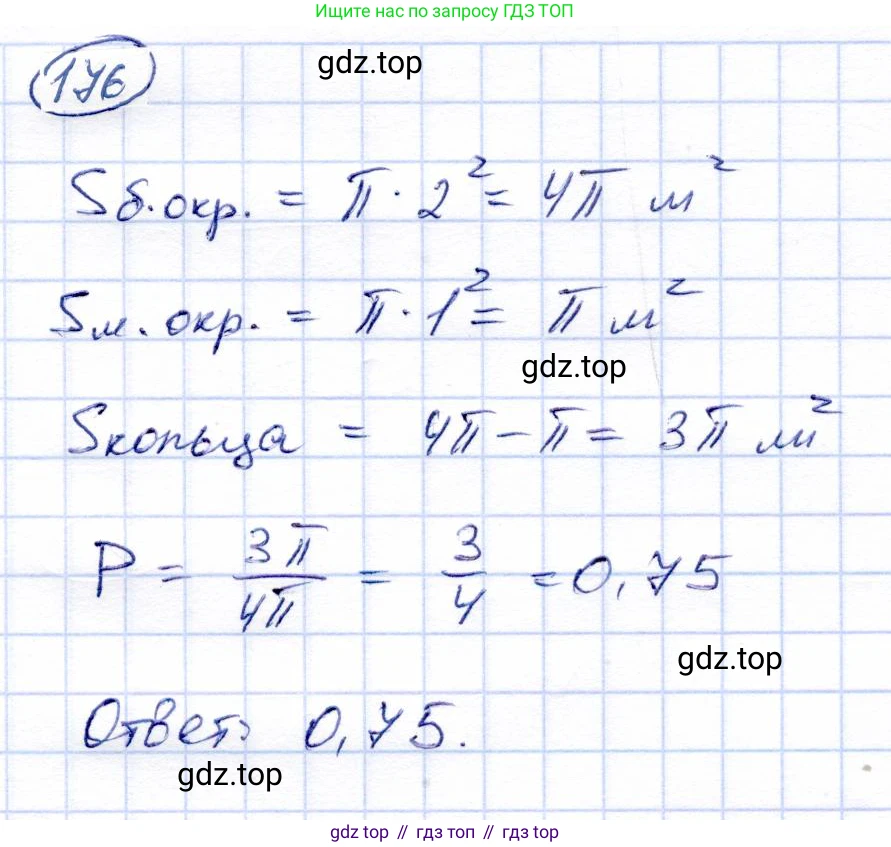 Ищите нас по запросу ГДЗ ТОП
176
gdz.top
Sб.окр. = π · 2² = 4π м²
Sм.окр. = π · 1² = π м²
gdz.top
Sкольца = 4π − π = 3π м²
P = 3π/4π = 3/4 = 0,75
gdz.top
Ответ: 0,75.
gdz.top
gdz top // гдз топ // gdz top